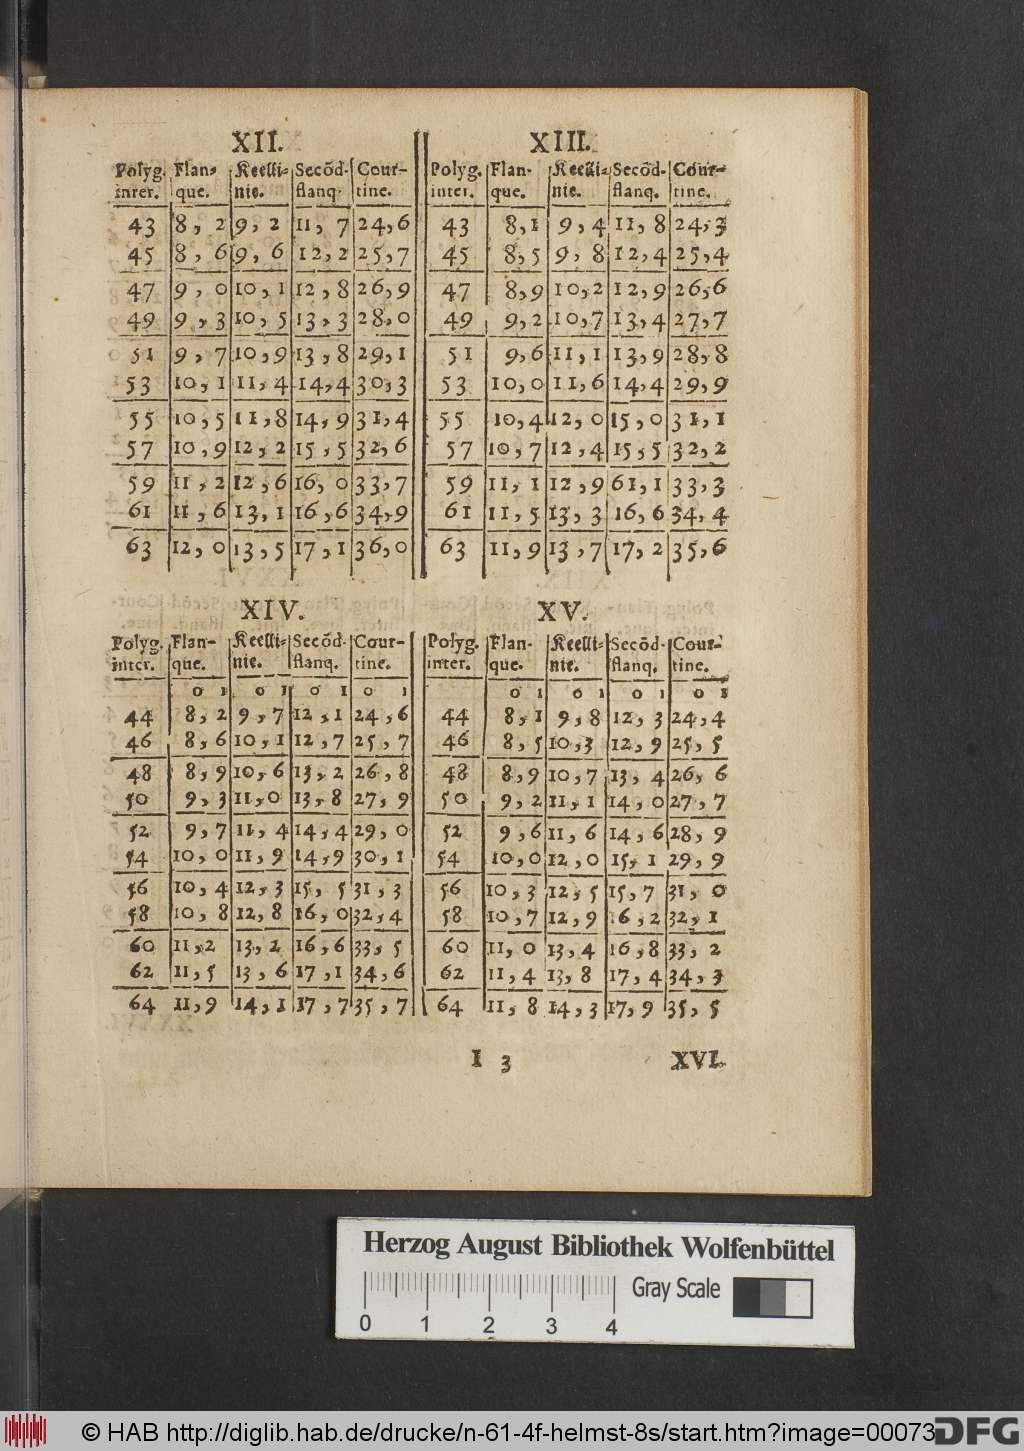 XII. XIII.
Polyg. Flan- Keelli- Secōd- Cour- Polyg. Flan- Keelli- Secōd- Cour-
inter. que. nie. flanq. tine. inter. que. nie. flanq. tine.
43 8, 2 9, 2 11, 7 24,6 43 8,1 9,4 11,8 24,3
45 8, 6 9, 6 12,2 25,7 45 8,5 9,8 12,4 25,4
47 9, 0 10,1 12,8 26,9 47 8,9 10,2 12,9 26,6
49 9, 3 10,5 13,3 28,0 49 9,2 10,7 13,4 27,7
51 9, 7 10,9 13,8 29,1 51 9,6 11,1 13,9 28,8
53 10,1 11,4 14,4 30,3 53 10,0 11,6 14,4 29,9
55 10,5 11,8 14,9 31,4 55 10,4 12,0 15,0 31,1
57 10,9 12,2 15,5 32,6 57 10,7 12,4 15,5 32,2
59 11,2 12,6 16,0 33,7 59 11,1 12,9 61,1 33,3
61 11,6 13,1 16,6 34,9 61 11,5 13,3 16,6 34,4
63 12,0 13,5 17,1 36,0 63 11,9 13,7 17,2 35,6
XIV. XV.
Polyg. Flan- Keelli- Secōd- Cour- Polyg. Flan- Keelli- Secōd- Cour-
inter. que. nie. flanq. tine. inter. que. nie. flanq. tine.
0 1 0 1 0 1 0 1 0 1 0 1 0 1 0 1
44 8,2 9,7 12,1 24,6 44 8,1 9,8 12,3 24,4
46 8,6 10,1 12,7 25,7 46 8,5 10,3 12,9 25,5
48 8,9 10,6 13,2 26,8 48 8,9 10,7 13,4 26,6
50 9,3 11,0 13,8 27,9 50 9,2 11,1 14,0 27,7
52 9,7 11,4 14,4 29,0 52 9,6 11,6 14,6 28,9
54 10,0 11,9 14,9 30,1 54 10,0 12,0 15,1 29,9
56 10,4 12,3 15,5 31,3 56 10,3 12,5 15,7 31,0
58 10,8 12,8 16,0 32,4 58 10,7 12,9 16,2 32,1
60 11,2 13,2 16,6 33,5 60 11,0 13,4 16,8 33,2
62 11,5 13,6 17,1 34,6 62 11,4 13,8 17,4 34,3
64 11,9 14,1 17,7 35,7 64 11,8 14,3 17,9 35,5
I 3 XVI.
Herzog August Bibliothek Wolfenbüttel
Gray Scale
0 1 2 3 4
© HAB http://diglib.hab.de/drucke/n-61-4f-helmst-8s/start.htm?image=00073
DFG